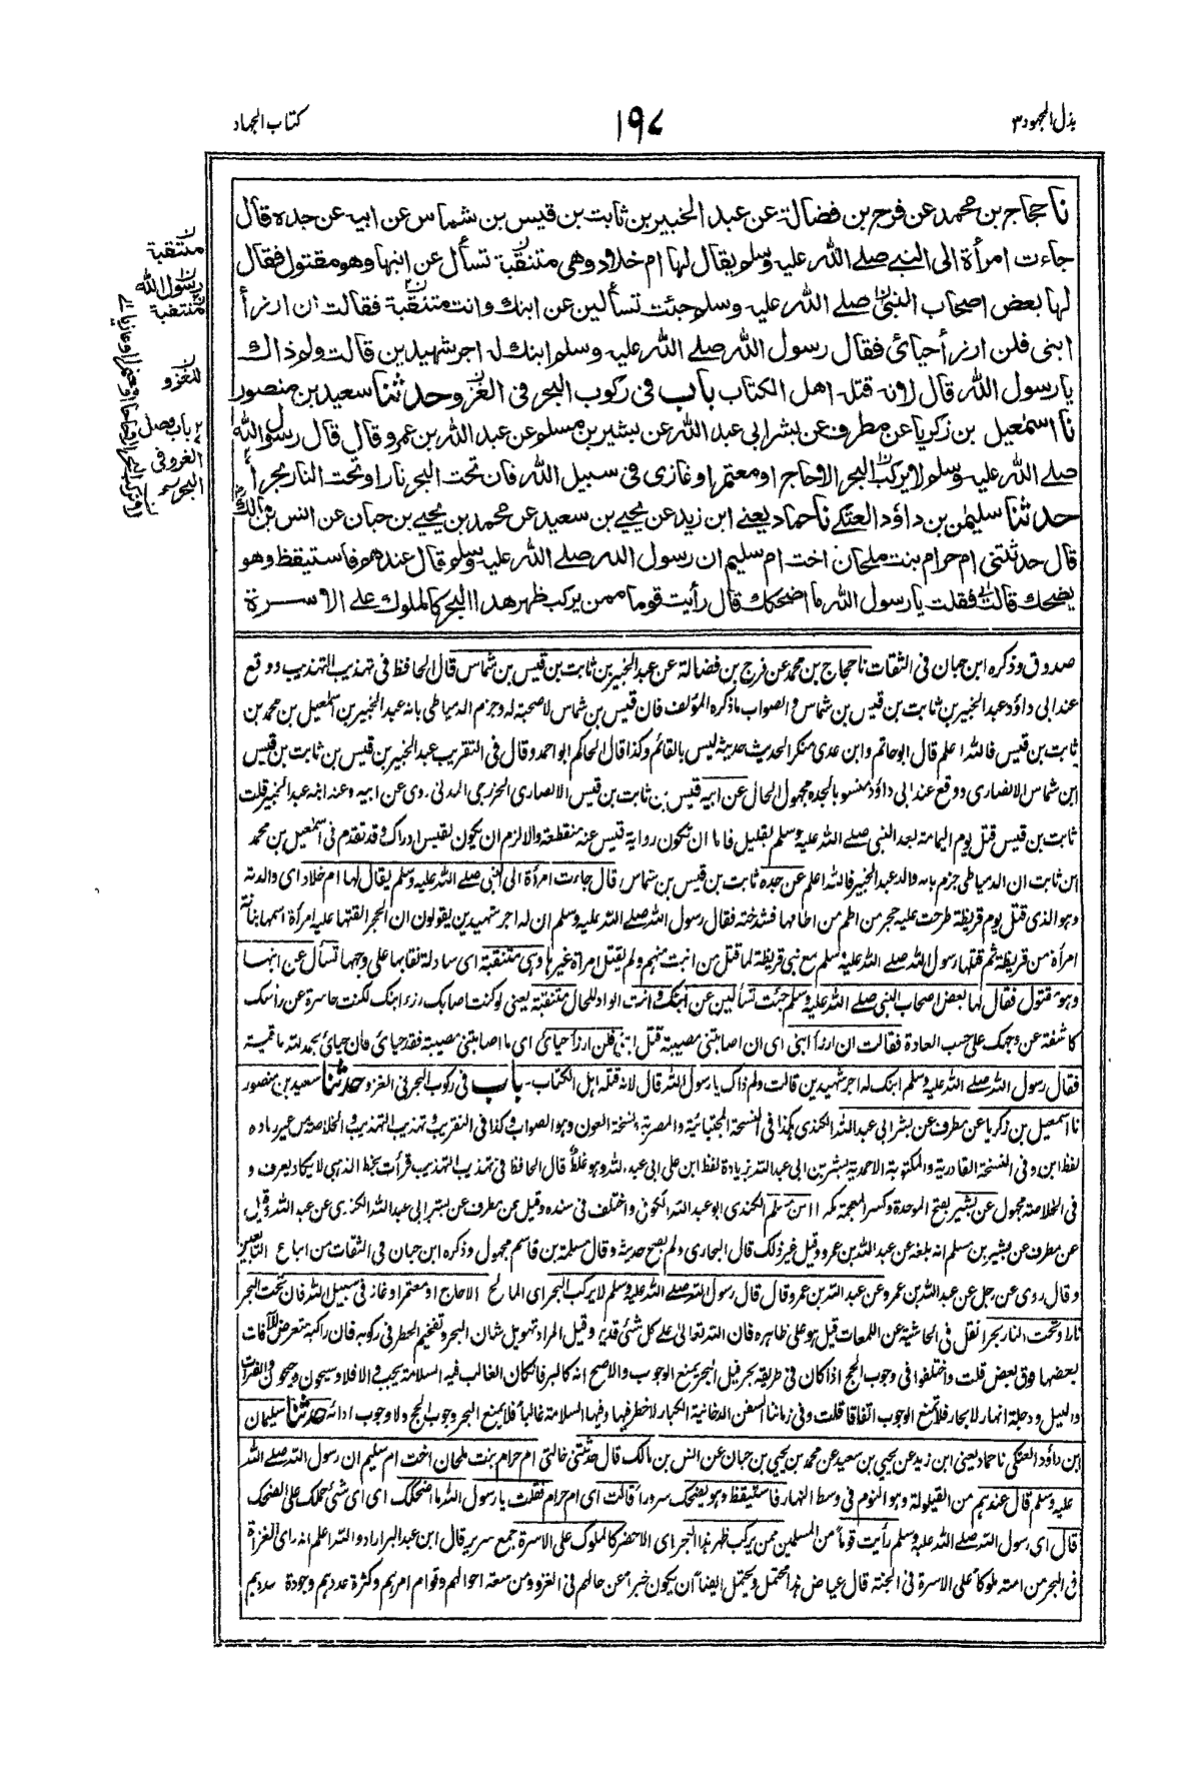 بذل المجهود ٣
١٩٧
كتاب الجهاد
نا حجاج بن محمد عن فرج بن فضالة عن عبد الخبير بن ثابت بن قيس بن شماس عن ابيه عن جده قال
جاءت امرأة الى النبي صلى الله عليه وسلم يقال لها ام خلاد وهي متنقبة تسأل عن ابنها وهو مقتول فقال
لها بعض اصحاب النبي صلى الله عليه وسلم جئت تسألين عن ابنك وانت متنقبة فقالت ان ارزأ
ابني فلن ارزأ حيائي فقال رسول الله صلى الله عليه وسلم ابنك له اجر شهيدين قالت ولم ذاك
يا رسول الله قال لانه قتله اهل الكتاب باب في ركوب البحر في الغزو حدثنا سعيد بن منصور
نا اسمعيل بن زكريا عن مطرف عن بشر ابي عبد الله عن بشير بن مسلم عن عبد الله بن عمرو قال قال رسول الله
صلى الله عليه وسلم لا يركب البحر الا حاج او معتمر او غازي في سبيل الله فان تحت البحر نارا وتحت النار بحرا
حدثنا سليمن بن داؤد العتكي نا حماد يعني ابن زيد عن يحيى بن سعيد عن محمد بن يحيى بن حبان عن انس بن مالك
قال حدثتني ام حرام بنت ملحان اخت ام سليم ان رسول الله صلى الله عليه وسلم قال عندهم فاستيقظ وهو
يضحك قالت فقلت يا رسول الله ما اضحكك قال رأيت قوما ممن يركب ظهر هذا البحر كالملوك على الاسرة
منتقبة
رسول الله
منتقبة
للغزو
باب فضل
الغزو في
البحر
صدوق وذكره ابن حبان في الثقات نا حجاج بن محمد عن فرج بن فضالة عن عبد الخبير بن ثابت بن قيس بن شماس قال الحافظ في تهذيب التهذيب ووقع
عند ابي داؤد عبد الخبير بن ثابت بن قيس بن شماس والصواب ما ذكره المؤلف فان قيس بن شماس لا صحبة له وجزم الدمياطي بانه عبد الخبير بن اسمعيل بن محمد بن
ثابت بن قيس فالله اعلم قال ابو حاتم وابن عدي منكر الحديث حديثه ليس بالقائم وكذا قال الحاكم ابو احمد وقال في التقريب عبد الخبير بن قيس بن ثابت بن قيس
ابن شماس الانصاري ووقع عند ابي داؤد منسوبا لجده مجهول الحال عن ابيه قيس بن ثابت بن قيس الانصاري الخزرجي المدني روى عن ابيه وعنه ابنه عبد الخبير قلت
ثابت بن قيس قتل يوم اليمامة بعد النبي صلى الله عليه وسلم بقليل فاما ان تكون رواية قيس عنه منقطعة والا لزم ان يكون لقيس ادراك وقد تقدم في اسمعيل بن محمد
ابن ثابت ان الدمياطي جزم بانه والد عبد الخبير فالله اعلم عن جده ثابت بن قيس بن شماس قال جاءت امرأة الى النبي صلى الله عليه وسلم يقال لها ام خلاد اى والدته
وهو الذي قتل يوم قريظة طرحت عليه حجر من اطم من اطامها فشدخته فقال رسول الله صلى الله عليه وسلم ان له اجر شهيدين يقولون ان الحجر القتها عليه امرأة اسمها بنانة
امرأة من قريظة ثم قتلها رسول الله صلى الله عليه وسلم مع بني قريظة لما قتل من انبت منهم ولم يقتل امرأة غيرها وهي متنقبة اى سادلة نقابها على وجهها تسأل عن ابنها
وهو مقتول فقال لها بعض اصحاب النبي صلى الله عليه وسلم جئت تسألين عن ابنك وانت الواو للحال متنقبة يعني لو كنت اصابك رزء ابنك لكنت حاسرة عن رأسك
كاشفة عن وجهك على حسب العادة فقالت ان ارزأ ابني اى ان اصابتني مصيبة قتل ابني فلن ارزأ حيائي اى ما اصابتني مصيبة فقد حيائي فان حيائي بحمد الله باقية
فقال رسول الله صلى الله عليه وسلم ابنك له اجر شهيدين قالت ولم ذاك يا رسول الله قال لانه قتله اهل الكتاب۔ باب في ركوب البحر في الغزو حدثنا سعيد بن منصور
نا اسمعيل بن زكريا عن مطرف عن بشر ابي عبد الله الكندي هكذا في النسخة المجتبائية والمصرية ونسخة العون وهو الصواب وكذا في التقريب وتهذيب التهذيب والخلاصة من غير زيادة
لفظ ابن وفي النسخة القادرية والمكتوبة الاحمدية بشر بن ابي عبد الله بزيادة لفظ ابن على ابي عبد الله وهو غلط قال الحافظ في تهذيب التهذيب قرأت بخط الذهبي لا يكاد يعرف و
في الخلاصة مجهول عن بشير بفتح الموحدة وكسر المعجمة مكبرا ابن مسلم الكندي ابو عبد الله الكوفي واختلف في سنده وقيل عن مطرف عن بشر ابي عبد الله الكندي عن عبد الله وقيل
عن مطرف عن بشير بن مسلم انه بلغه عن عبد الله بن عمرو وقيل غير ذلك قال البخاري ولم يصح حديثه وقال مسلمة بن قاسم مجهول وذكره ابن حبان في الثقات من اتباع التابعين
وقال روى عن رجل عن عبد الله بن عمرو عن عبد الله بن عمرو قال قال رسول الله صلى الله عليه وسلم لا يركب البحر اى المالح الا حاج او معتمر او غاز في سبيل الله فان تحت البحر
نارا وتحت النار بحرا نقل في الحاشية عن اللمعات قيل هو على ظاهره فان الله تعالى على كل شئ قدير وقيل المراد تهويل شان البحر وتفخيم الخطر في ركوبه فان راكبه متعرض للآفات
بعضها فوق بعض قلت واختلفوا في وجوب الحج اذا كان في طريقه بحر فقيل البحر يمنع الوجوب والاصح انه كالبر فان كان الغالب فيه السلامة يجب والا فلا وسيحون وجيحون والفرات
والنيل ودجلة انهار لا بحار فلا تمنع الوجوب اتفاقا قلت وفي زماننا السفن الدخانية الكبار لا خطر فيها وفيها السلامة غالبا فلا يمنع البحر وجوب الحج ولا وجوب ادائه حدثنا سليمان
ابن داؤد العتكي نا حماد يعني ابن زيد عن يحيى بن سعيد عن محمد بن يحيى بن حبان عن انس بن مالك قال حدثتني خالتي ام حرام بنت ملحان اخت ام سليم ان رسول الله صلى الله
عليه وسلم قال عندهم من القيلولة وهو النوم في وسط النهار فاستيقظ وهو يضحك سرورا قالت اى ام حرام فقلت يا رسول الله ما اضحكك اى اى شئ حملك على الضحك
قال اى رسول الله صلى الله عليه وسلم رأيت قوما من المسلمين ممن يركب ظهر هذا البحر اى الاخضر كالملوك على الاسرة جمع سرير قال ابن عبد البر اراد والله اعلم انه راى الغزاة
في البحر من امته ملوكا على الاسرة في الجنة قال عياض هذا محتمل ويحتمل ايضا ان يكون خبرا عن حالهم في الغزو ومن سعة احوالهم وقوام امرهم وكثرة عددهم وجودة عددهم